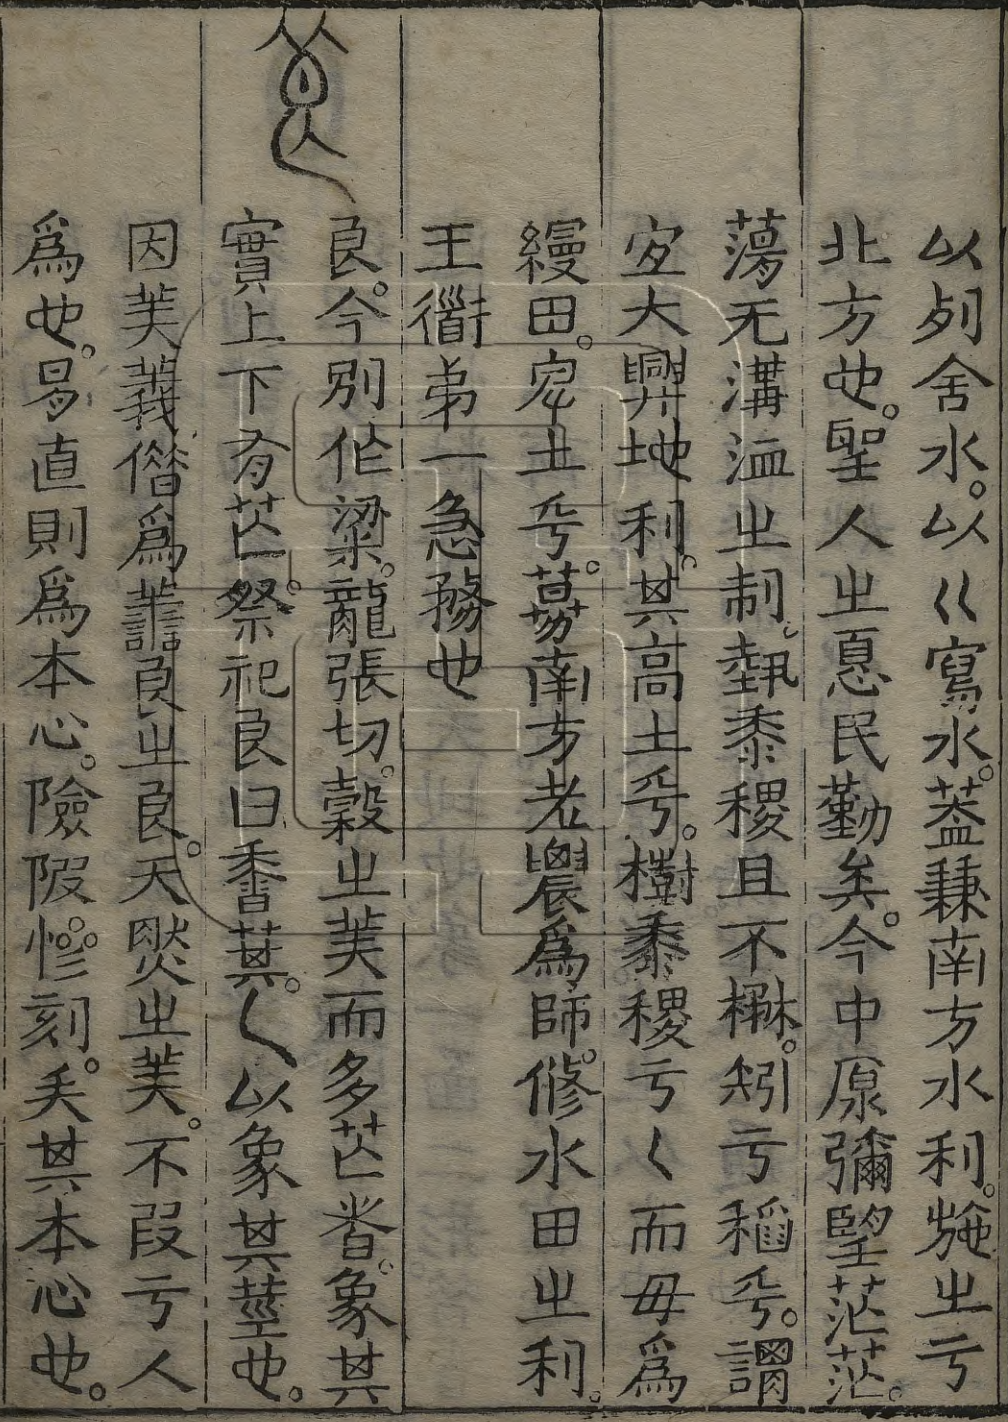 以列舍水。以巜寫水。葢兼南方水利。㪉㞢亏
北方也。聖人㞢悳民勤矣。今中原彌望茫茫。
蕩无溝洫㞢制。埶黍稷且不楙。矧亏稻乎。謂
宐大興地利。其高土乎。樹黍稷亏𡿨而毋爲
縵田。𤰞土乎。募南方老農爲師。修水田㞢利。
王衟弟一急務也
良。今別作梁。龍張切。穀㞢美而多芒者。象其
實上下有芒。祭祀良曰香萁。𡿨以象其莖也。
因美義僭爲譱良㞢良。天㷼㞢美。不叚亏人
爲也。易直則爲本心。險陂慘刻。失其本心也。